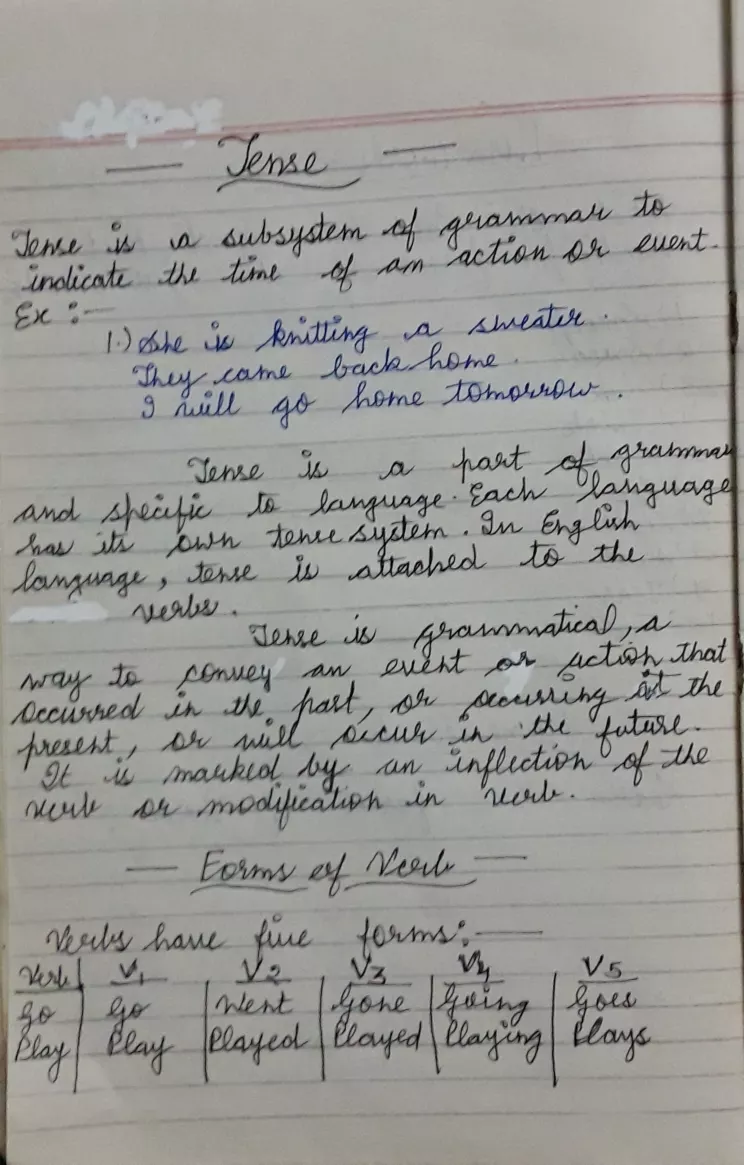 — Tense —
Tense is a subsystem of grammar to
indicate the time of an action or event.
Ex :—
1.) She is knitting a sweater.
They came back home.
I will go home tomorrow.
Tense is a part of grammar
and specific to language. Each language
has its own tense system. In English
language, tense is attached to the
verbs.
Tense is grammatical, a
way to convey an event or action that
occurred in the past, or occurring at the
present, or will occur in the future.
It is marked by an inflection of the
verb or modification in verb.
— Forms of Verb —
Verbs have five forms:—
Verb V1 V2 V3 V4 V5
Go Go Went Gone Going Goes
Play Play Played Played Playing Plays